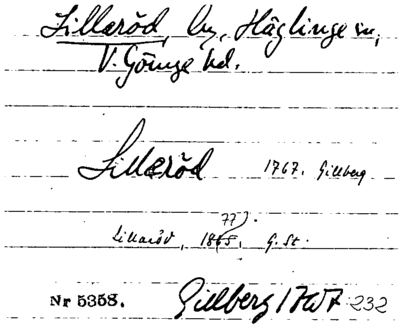 Lillaröd, by, Häglinge sn,
V. Göinge hd.
Lillaröd 1767. Gillberg
77).
Lillaröd, 1865, G. St.
Nr 5358. Gillberg 1767 232